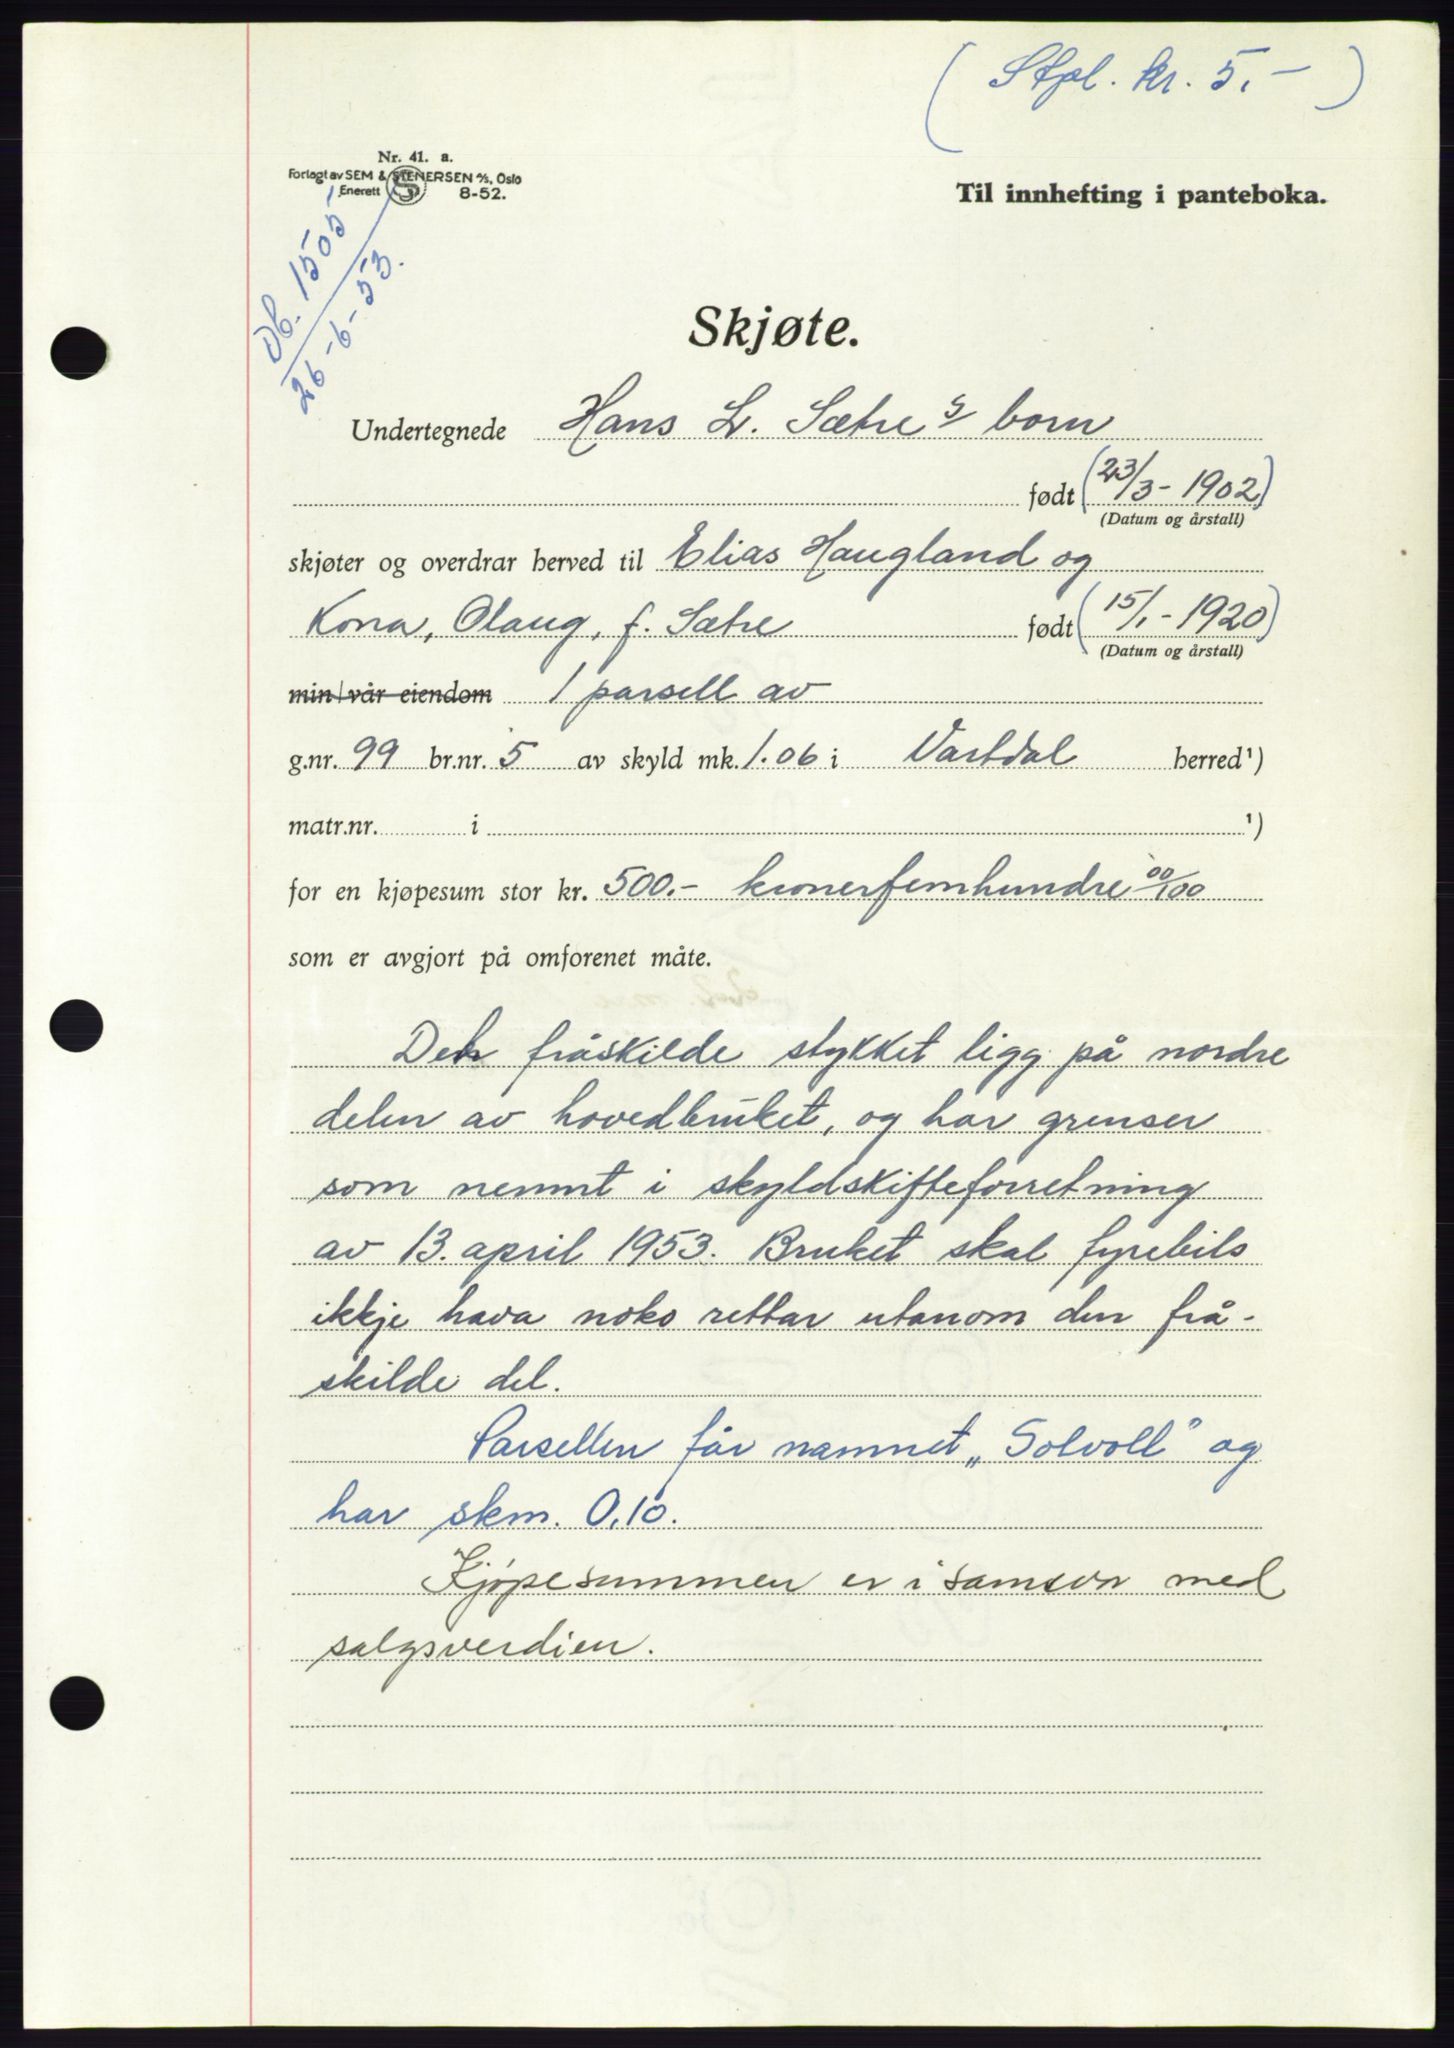 ( Stpl. kr. 5.- )
Nr. 41. a.
Forlagt av SEM & STENERSEN A/S, Oslo
Enerett S 8-52.
Til innhefting i panteboka.
Db. 1505
26-6-53.
Skjøte.
Undertegnede Hans L. Sætre's born
født (23/3-1902)
(Datum og årstall)
skjøter og overdrar herved til Elias Haugland og
Kona, Olaug, f. Sætre født (15/1-1920)
(Datum og årstall)
min/vår eiendom 1 parsell av
g.nr. 99 br.nr. 5 av skyld mk. 1.06 i Vartdal herred ¹)
matr.nr. i ¹)
for en kjøpesum stor kr. 500.- kronerfemhundre 00/100
som er avgjort på omforenet måte.
Det fråskilde stykket ligg på nordre
delen av hovedbruket, og har grenser
som nemnt i skyldskifteforretning
av 13. april 1953. Bruket skal fyrebils
ikkje hava noko rettar utanom den frå-
skilde del.
Parsellen får namnet „Solvoll" og
har skm. 0,10.
Kjøpesummen er i samsvar med
salgsverdien.